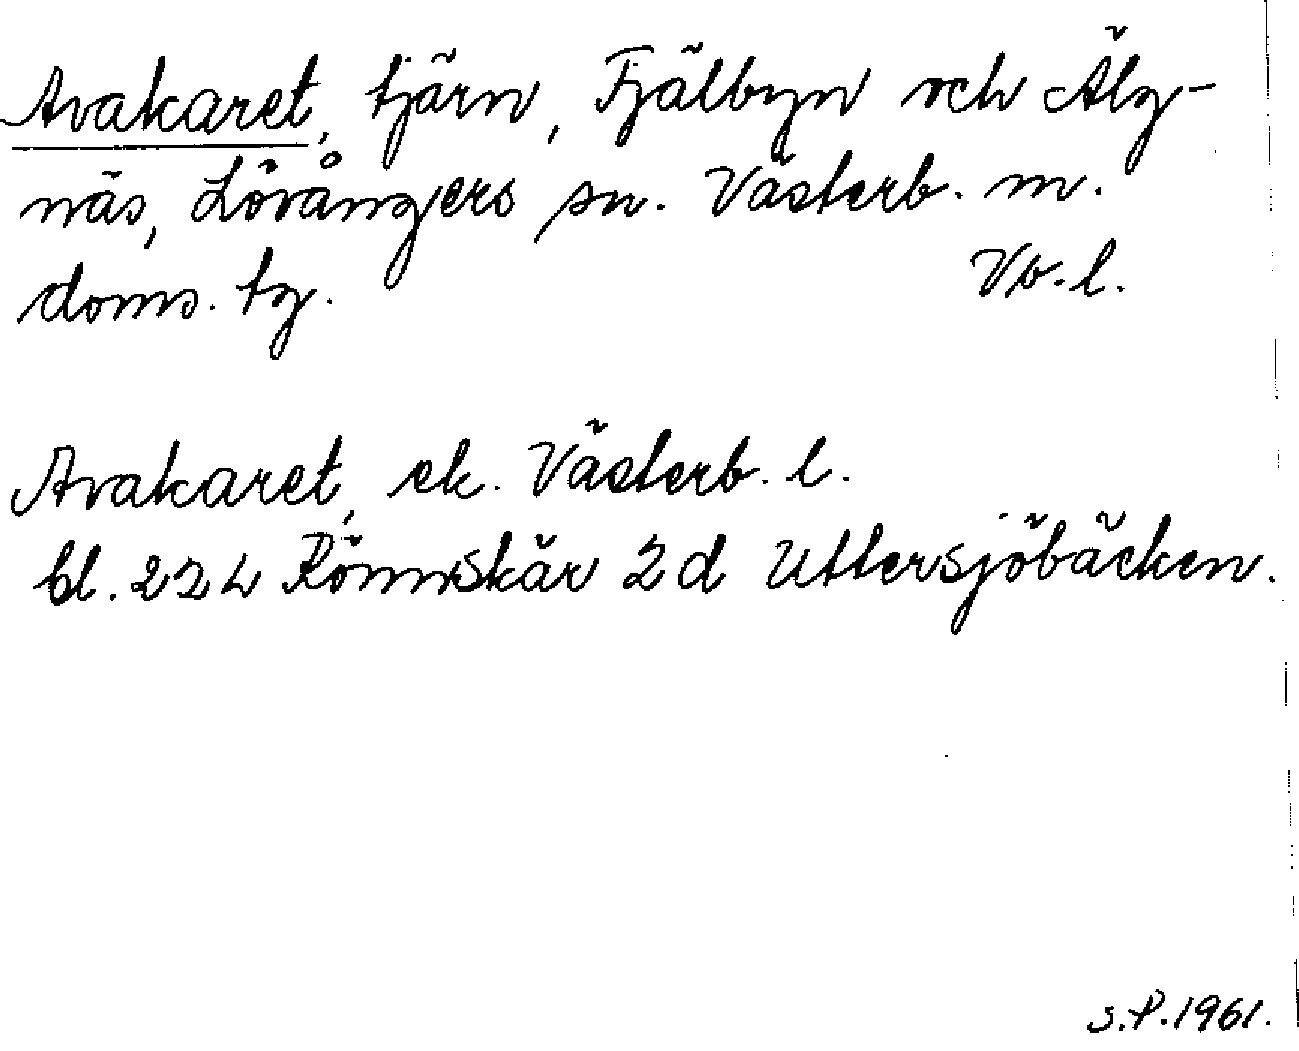 Avakaret, tjärn, Fjälbyn och Älg-
näs, Lövångers sn. Västerb. m.
doms. tg. Vb. l.
Avakaret, ek. Västerb. l.
bl. 224 Rönnskär 2d Uttersjöbäcken.
S.P. 1961.